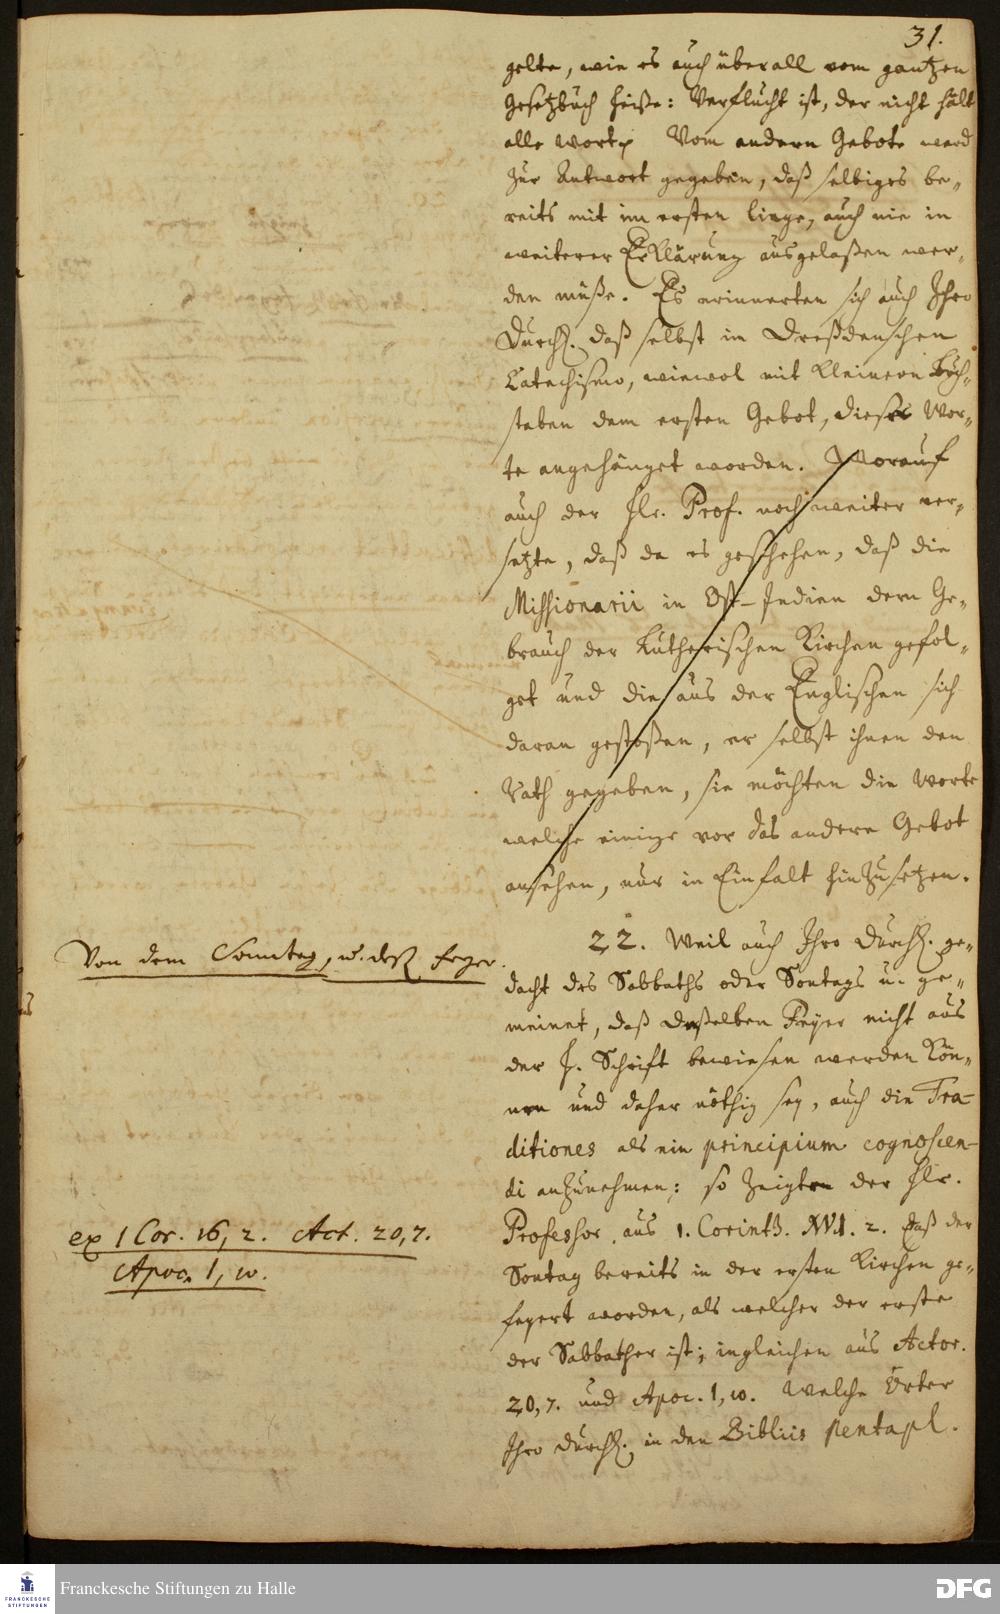 31.
gelte, wie es auch überall vom gantzen
Gesetzbuch heiße: Verflucht ist, der nicht hält
alle Worte Vom andern Gebote ward
zur Antwort gegeben, daß selbiges be-
reits mit im ersten liege, auch nie in
weiterer Erklärung ausgelaßen wer-
den müße. Es erinnerten sich auch Ihro
Durchl. daß selbst im Dreßdenschen
Catechismo, wiewol mit kleinern Buch-
staben dem ersten Gebot, diese Wor-
te angehänget worden. Worauf
auch der Hr. Prof. noch weiter ver-
setzte, daß da es geschehen, daß die
Missionarii in Ost-Indien dem Ge-
brauch der Lutherischen Kirchen gefol-
get und die aus der Englischen sich
daran gestoßen, er selbst ihnen den
Rath gegeben, sie möchten die Worte
welche einige vor das andere Gebot
ansehen, nur in Einfalt hinzusetzen.
Von dem Sonntag, u. deß Feyer.
22. Weil auch Ihro Durchl. ge-
dacht des Sabbaths oder Sontags u. ge-
meinet, daß deßelben Feyer nicht aus
der H. Schrift bewiesen werden kön-
nen und daher nöthig sey, auch die Tra-
ditiones als ein principium cognoscen-
di anzunehmen; so zeigte der Hr.
Professor aus 1. Corinth. XVI. 2. daß der
Sontag bereits in der ersten Kirchen ge-
feyert worden, als welcher der erste
der Sabbather ist; ingleichen aus Actor.
20, 7. und Apoc. 1, 10. Welche Örter
Ihro Durchl. in den Bibliis pentapl.
ex 1 Cor. 16, 2. Act. 20, 7.
Apoc. 1, 10.
FRANCKESCHE
STIFTUNGEN
Franckesche Stiftungen zu Halle
DFG